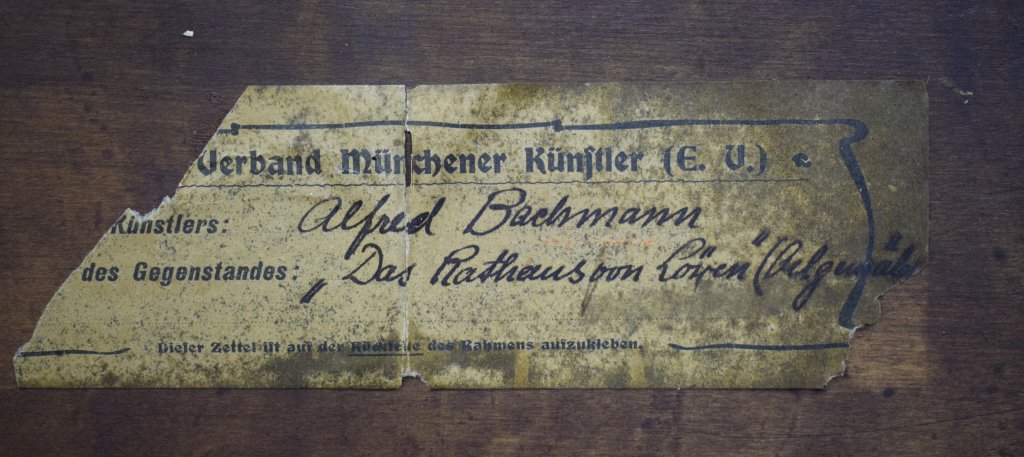 Verband Münchener Künstler (E. V.)
Künstlers: Alfred Bachmann
des Gegenstandes: „Das Rathaus von Löwen" (Oelgemälde
Dieser Zettel ist auf der Rückseite des Rahmens aufzukleben.